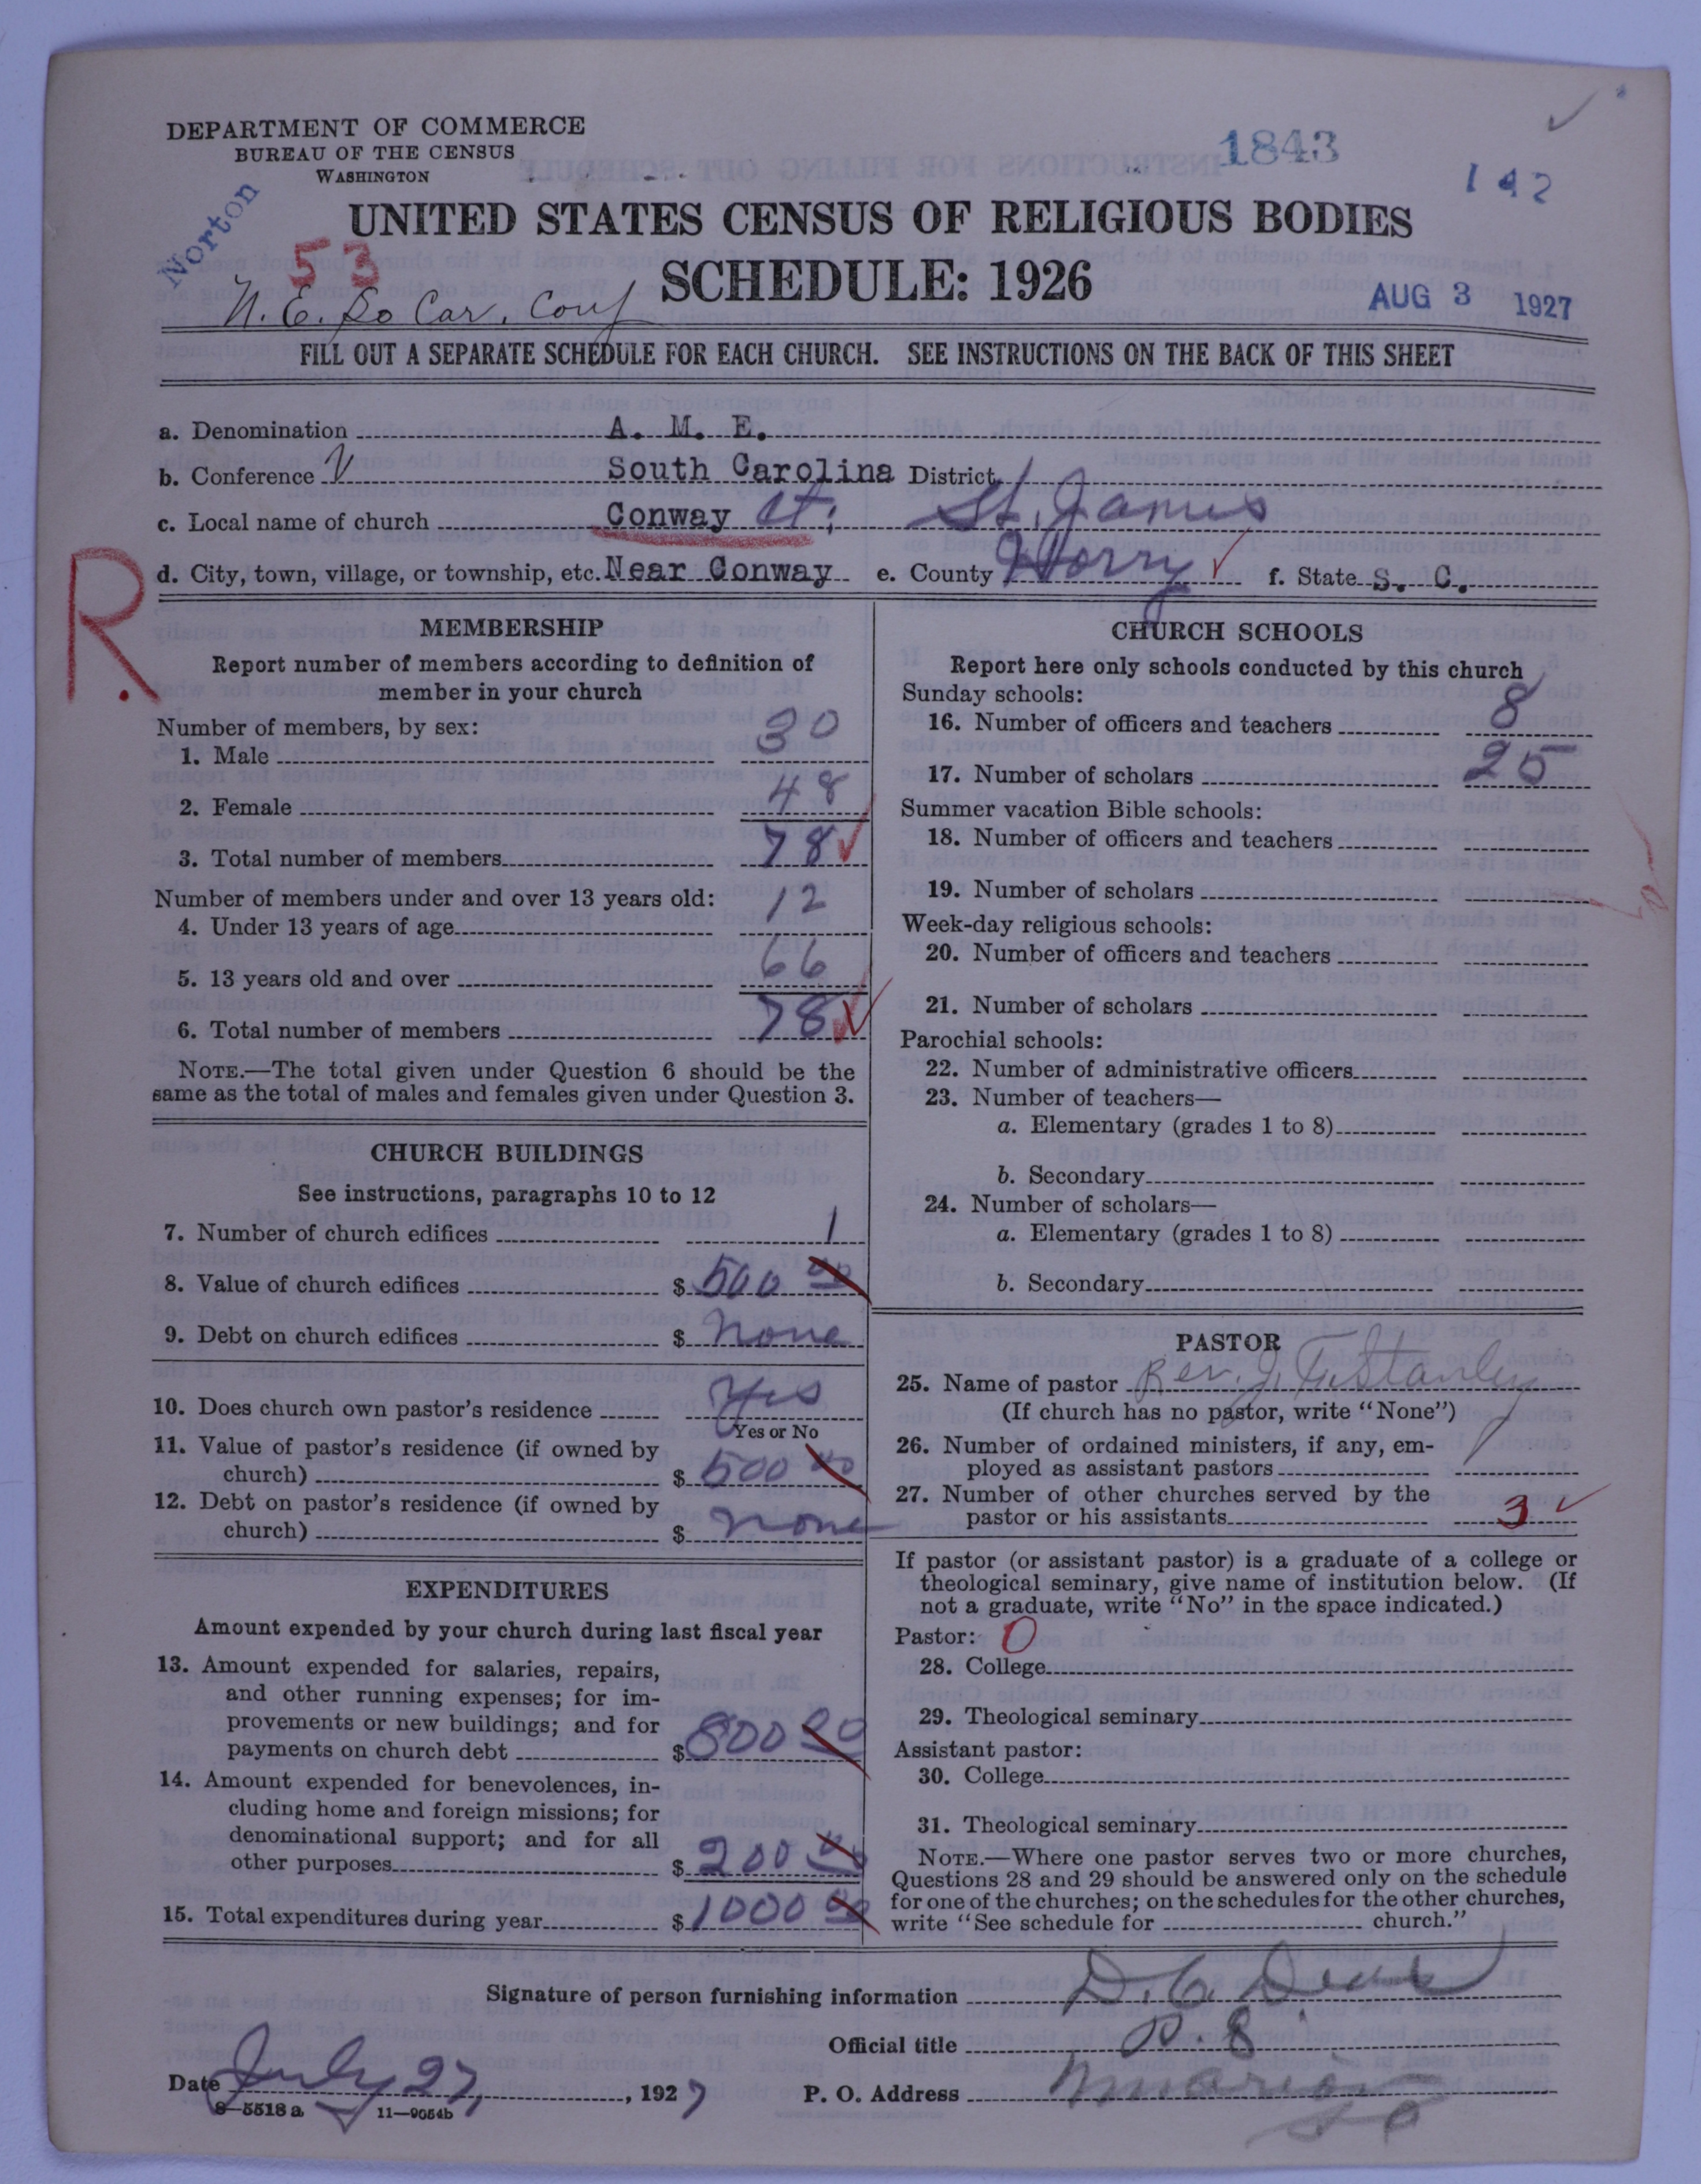 DEPARTMENT OF COMMERCE
BUREAU OF THE CENSUS
WASHINGTON
1843
142
Norton
UNITED STATES CENSUS OF RELIGIOUS BODIES
53
SCHEDULE: 1926
AUG 3 1927
N. E. So Car. Conf
FILL OUT A SEPARATE SCHEDULE FOR EACH CHURCH. SEE INSTRUCTIONS ON THE BACK OF THIS SHEET
a. Denomination A. M. E.
b. Conference South Carolina District
c. Local name of church Conway Ct; St. James
d. City, town, village, or township, etc. Near Conway e. County Horry f. State S. C.
R.
MEMBERSHIP
Report number of members according to definition of
member in your church
Number of members, by sex:
1. Male 30
2. Female 48
3. Total number of members 78
Number of members under and over 13 years old:
4. Under 13 years of age 12
5. 13 years old and over 66
6. Total number of members 78
NOTE.—The total given under Question 6 should be the
same as the total of males and females given under Question 3.
CHURCH BUILDINGS
See instructions, paragraphs 10 to 12
7. Number of church edifices 1
8. Value of church edifices $ 500 00
9. Debt on church edifices $ none
10. Does church own pastor's residence Yes
Yes or No
11. Value of pastor's residence (if owned by
church) $ 500 00
12. Debt on pastor's residence (if owned by
church) $ none
EXPENDITURES
Amount expended by your church during last fiscal year
13. Amount expended for salaries, repairs,
and other running expenses; for im-
provements or new buildings; and for
payments on church debt $ 800 00
14. Amount expended for benevolences, in-
cluding home and foreign missions; for
denominational support; and for all
other purposes $ 200 00
15. Total expenditures during year $ 1000 00
CHURCH SCHOOLS
Report here only schools conducted by this church
Sunday schools:
16. Number of officers and teachers 8
17. Number of scholars 25
Summer vacation Bible schools:
18. Number of officers and teachers
19. Number of scholars
Week-day religious schools:
20. Number of officers and teachers
21. Number of scholars
Parochial schools:
22. Number of administrative officers
23. Number of teachers—
a. Elementary (grades 1 to 8)
b. Secondary
24. Number of scholars—
a. Elementary (grades 1 to 8)
b. Secondary
PASTOR
25. Name of pastor Rev. J. T. Stanley
(If church has no pastor, write "None")
26. Number of ordained ministers, if any, em-
ployed as assistant pastors
27. Number of other churches served by the
pastor or his assistants 3
If pastor (or assistant pastor) is a graduate of a college or
theological seminary, give name of institution below. (If
not a graduate, write "No" in the space indicated.)
Pastor: 0
28. College
29. Theological seminary
Assistant pastor:
30. College
31. Theological seminary
NOTE.—Where one pastor serves two or more churches,
Questions 28 and 29 should be answered only on the schedule
for one of the churches; on the schedules for the other churches,
write "See schedule for church."
Signature of person furnishing information D. C.
Official title P. E.
Date July 27, 1927 P. O. Address Marion
S C
8—5518 a 11—9054b